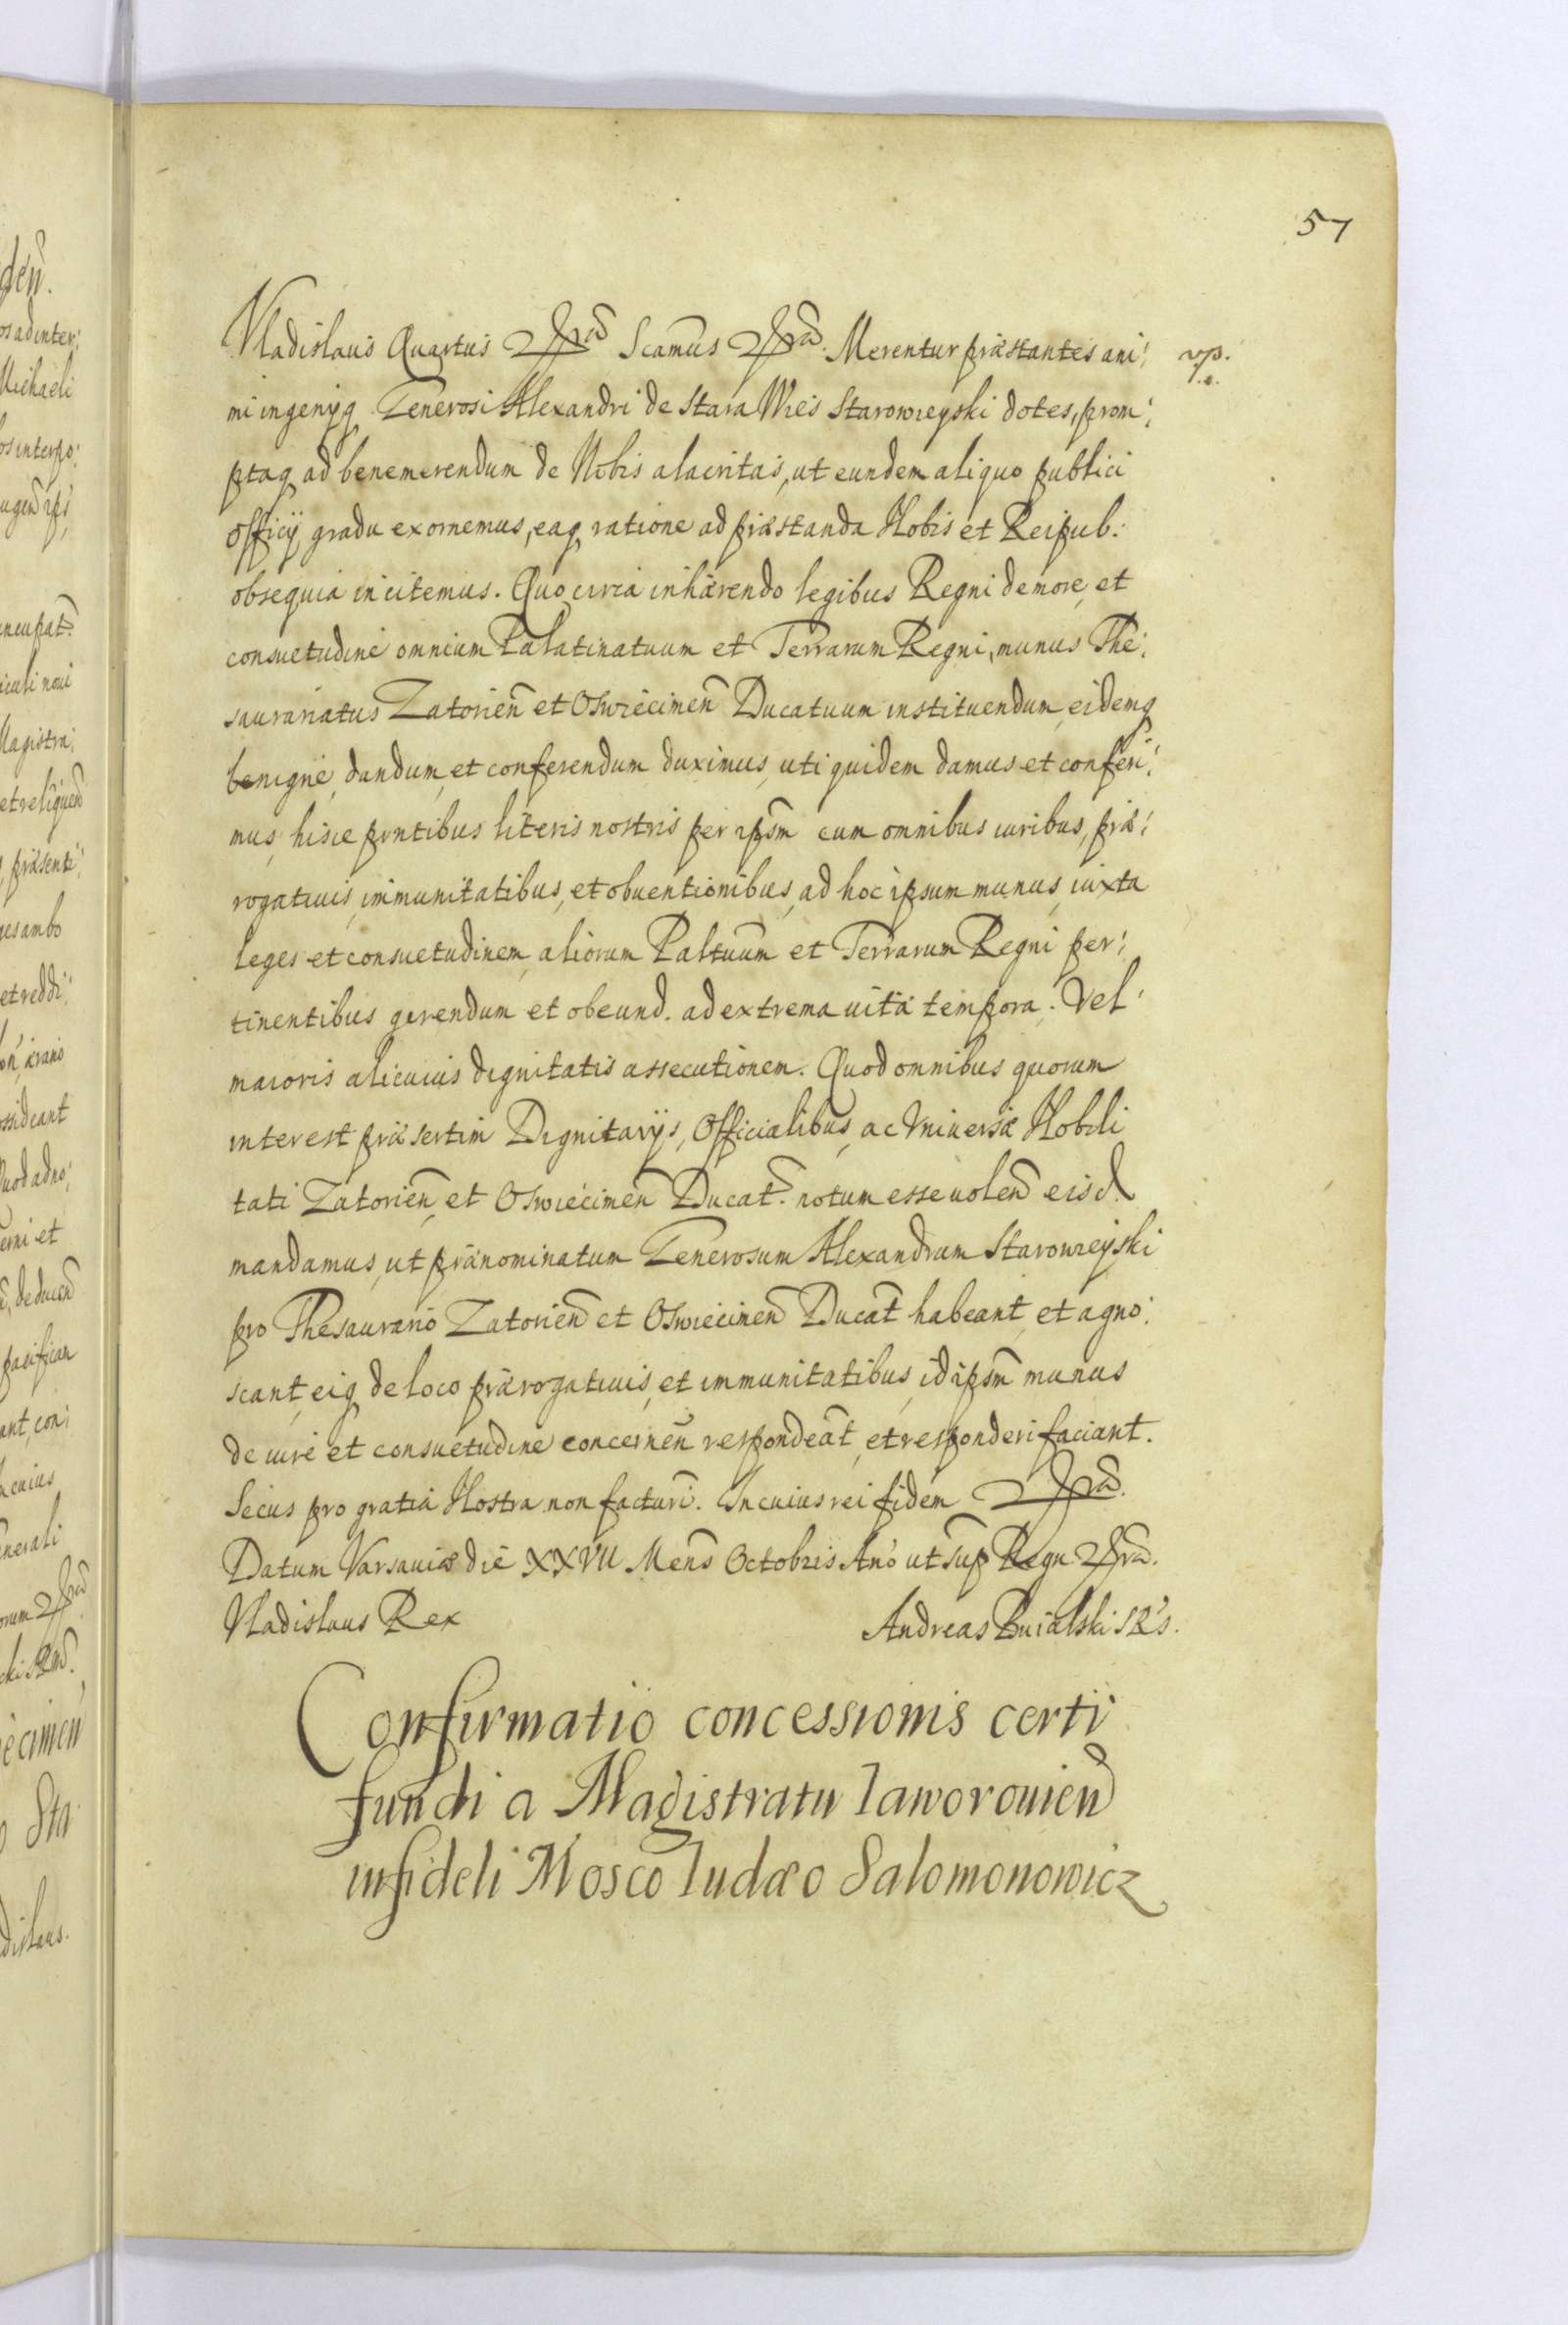 57
Vladislaus Quartus Scamus Merentur præstantes ani:
mi ingenijq Generosi Alexandri de Stara Wieś Starowieyski dotes, prom:
ptaq ad benemerendum de Nobis alacritas, ut eundem aliquo publici
officij gradu exornemus, eaq ratione ad præstanda Nobis et Reipub:
obsequia incitemus. Quocirca inhærendo legibus Regni de more et
consuetudine omnium Palatinatuum et Terrarum Regni, munus The:
saurariatus Zatorien̄ et Oswiecimen̄ Ducatuum instituendum, eidemq
benigne, dandum, et conferendum duximus, uti quidem damus et conferi:
mus, hisce pn̄tibus literis nostris per ipsm̄ cum omnibus iuribus, præ:
rogatiuis, immunitatibus, et obuentionibus, ad hoc ipsum munus, iuxta
leges et consuetudinem, aliorum Paltuum et Terrarum Regni per:
tinentibus gerendum et obeund. ad extrema uitæ tempora. Vel
maioris alicuius dignitatis assecutionem. Quod omnibus quorum
interest præsertim Dignitarijs, Officialibus, ac Vniuersæ Nobili
tati Zatorien̄, et Oswiecimen̄ Ducat. notum esse uolen̄ eisd.
mandamus, ut prænominatum Generosum Alexandrum Starowieyski
pro Thesaurario Zatorien̄ et Oswiecimen̄ Ducat̄ habeant, et agno:
scant, eiq de loco prærogatiuis, et immunitatibus, id ipsm̄ munus
de iure et consuetudine concernen̄ respondeāt, et responderi faciant.
Secus pro gratia Nostra non facturi. In cuius rei fidem
Datum Varsauiæ die XXVII Mens̄ Octobris An̄o ut sup̄ Regn
Vladislaus Rex Andreas Buialski SRs.
Confirmatio concessionis certi
fundi a Magistratu Iaworouien̄
infideli Mosco Iudæo Salomonowicz